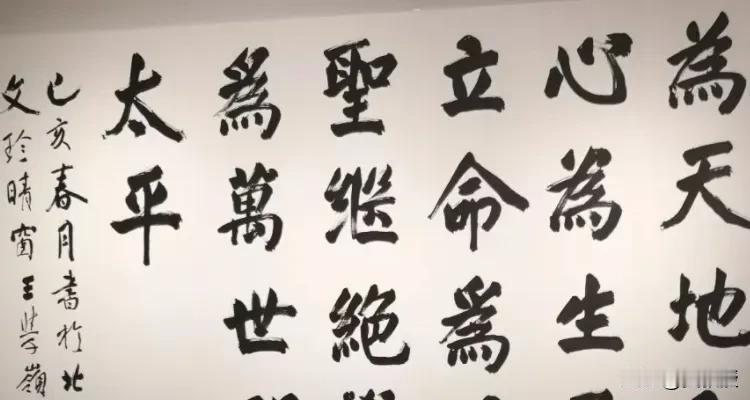 為天地
心為生
立命為
聖繼絕
為萬世
太平
己亥春月書於北
文玲晴窗王學嶺